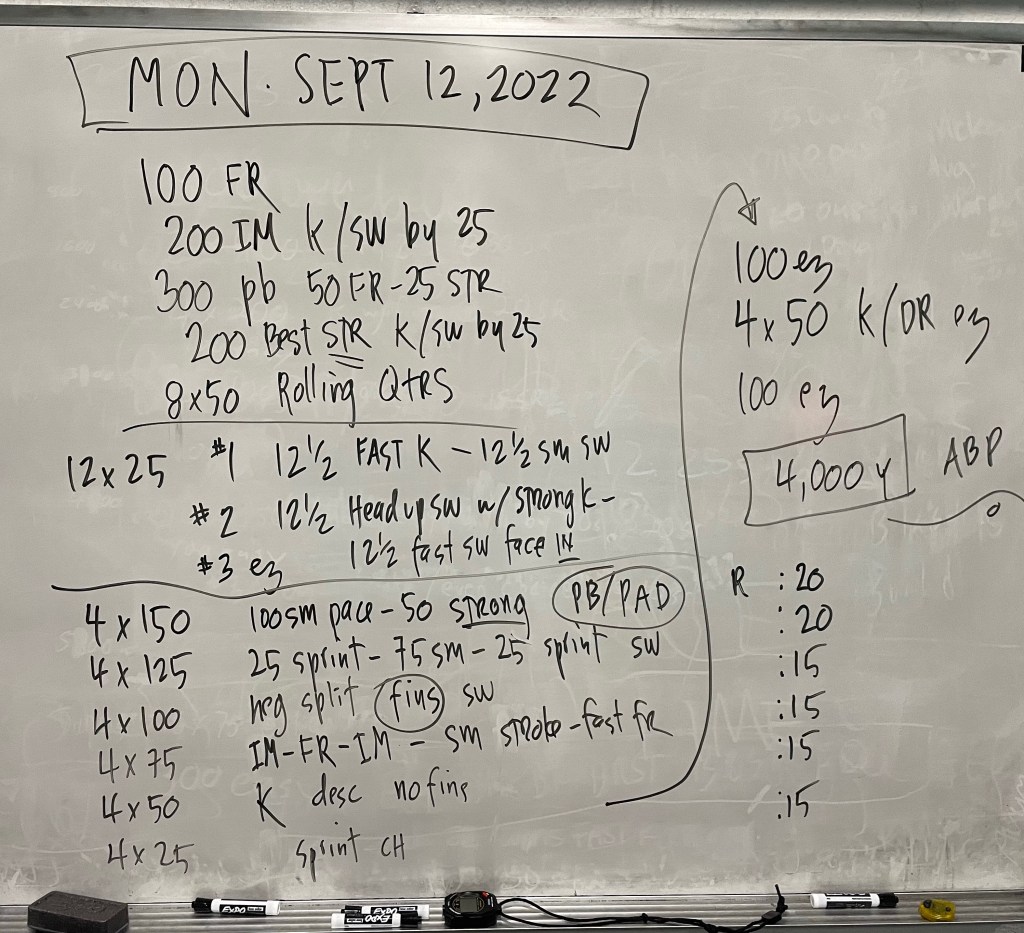 MON. SEPT 12, 2022
100 FR
200 IM K/SW by 25
300 pb 50 FR-25 STR
200 Best STR K/SW by 25
8x50 Rolling QTRS
12x25 #1 12½ FAST K - 12½ sm sw
#2 12½ Head up sw w/ strong k -
12½ fast sw face IN
#3 ez
4x150 100 sm pace - 50 strong PB/PAD
4x125 25 sprint - 75 sm - 25 sprint sw
4x100 neg split fins sw
4x75 IM-FR-IM - sm stroke - fast fr
4x50 K desc no fins
4x25 sprint CH
100 ez
4x50 K/DR ez
100 ez
4,000 Y ABP
R :20
:20
:15
:15
:15
:15
EXPO
EXPO
EXPO